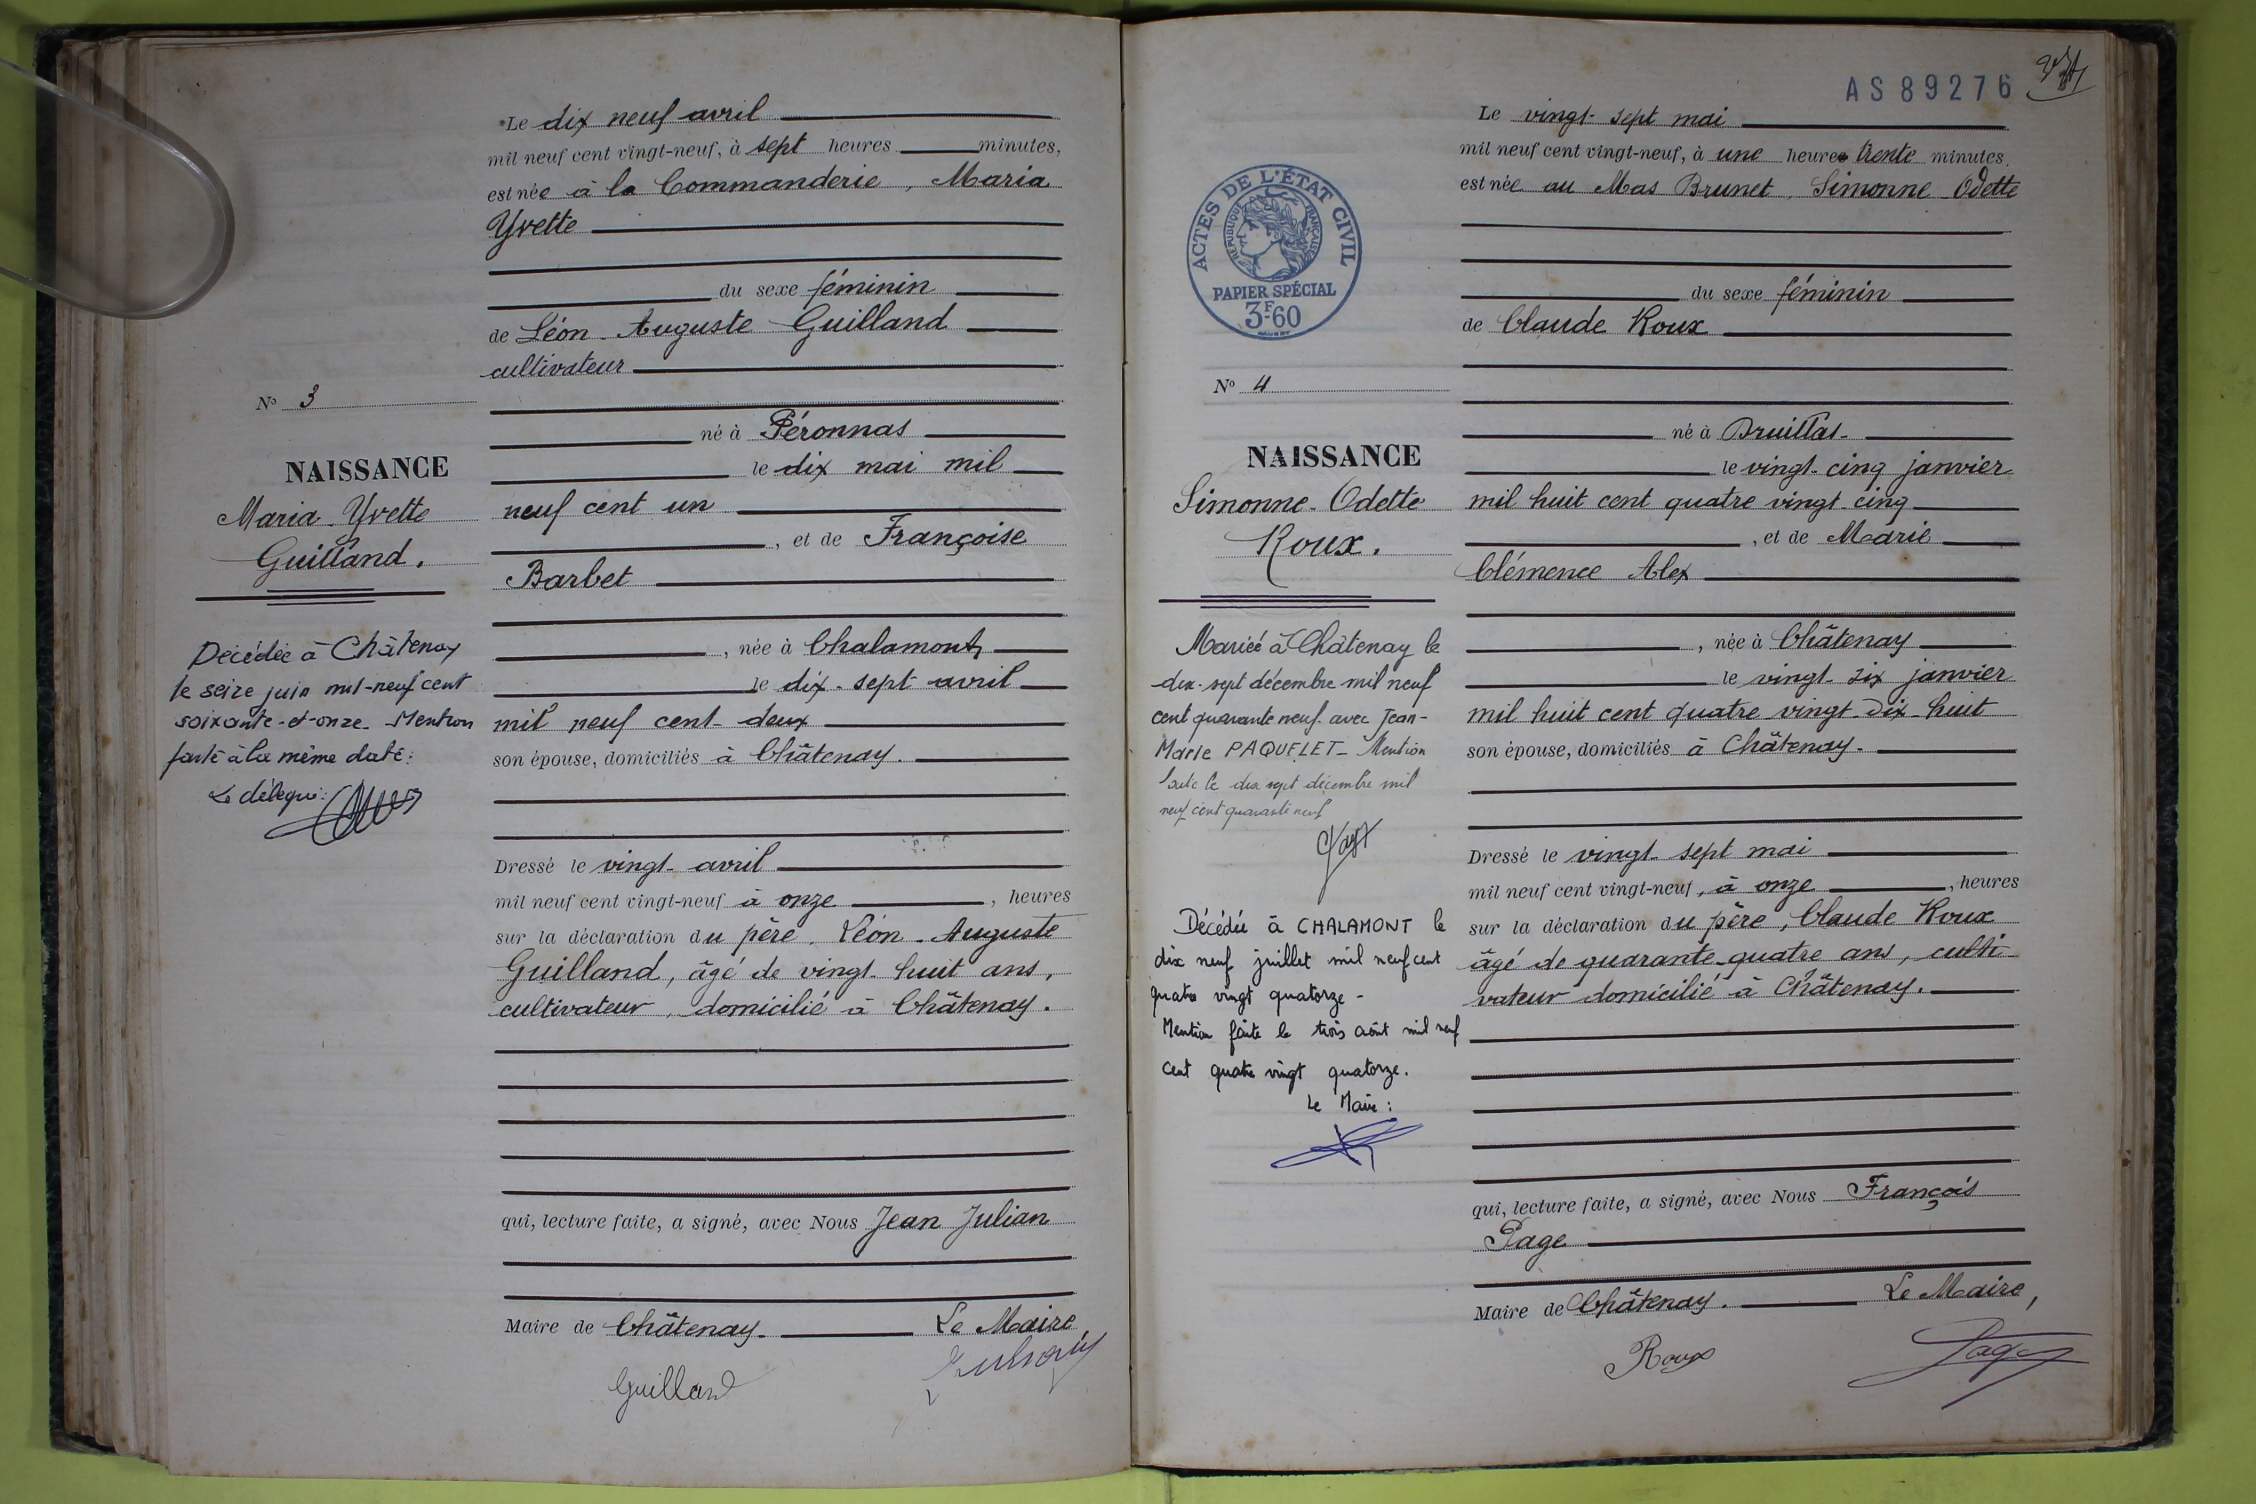 Le dix neuf avril
mil neuf cent vingt-neuf, à sept heures minutes,
est née à la Commanderie, Maria
Yvette
du sexe féminin
de Léon-Auguste Guilland
cultivateur
né à Péronnas
le dix mai mil
neuf cent un
, et de Françoise
Barbet
, née à Chalamont
le dix-sept avril
mil neuf cent deux
son épouse, domiciliés à Châtenay.
Dressé le vingt avril
mil neuf cent vingt-neuf à onze , heures
sur la déclaration du père, Léon-Auguste
Guilland, âgé de vingt-huit ans,
cultivateur, domicilié à Châtenay.
qui, lecture faite, a signé, avec Nous Jean Julian
Maire de Châtenay. Le Maire,
Guilland
No 3
NAISSANCE
Maria-Yvette
Guilland.
Décédée à Châtenay
le seize juin mil-neuf cent
soixante-et-onze. Mention
faite à la même date:
Le délégué:
AS 89276
Le vingt-sept mai
mil neuf cent vingt-neuf, à une heure trente minutes,
est née au Mas Brunet, Simonne-Odette
du sexe féminin
de Claude Roux
né à Druillat.
le vingt-cinq janvier
mil huit cent quatre vingt-cinq
, et de Marie
Clémence Alex
, née à Châtenay
le vingt-six janvier
mil huit cent quatre vingt-dix-huit
son épouse, domiciliés à Châtenay.
Dressé le vingt-sept mai
mil neuf cent vingt-neuf, à onze , heures
sur la déclaration du père, Claude Roux
âgé de quarante-quatre ans, culti-
vateur domicilié à Châtenay.
qui, lecture faite, a signé, avec Nous François
Page
Maire de Châtenay. Le Maire,
Roux Page
ACTES DE L'ÉTAT CIVIL
RÉPUBLIQUE FRANÇAISE
PAPIER SPÉCIAL
3F60
No 4
NAISSANCE
Simonne-Odette
Roux.
Mariée à Châtenay le
dix-sept décembre mil neuf
cent quarante neuf avec Jean-
Marie PAQUELET - Mention
faite le dix sept décembre mil
neuf cent quarante neuf
Page
Décédée à CHALAMONT le
dix neuf juillet mil neuf cent
quatre vingt quatorze -
Mention faite le trois août mil neuf
cent quatre vingt quatorze.
Le Maire: